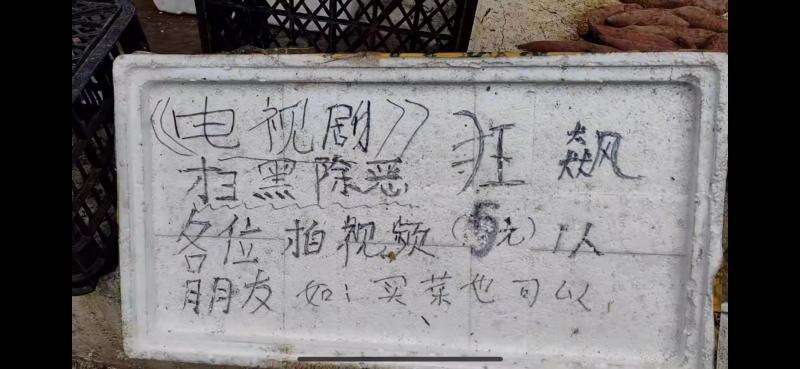 《电视剧》 狂飙
扫黑除恶
各位拍视频(5元)1人
朋友如:买菜也可以